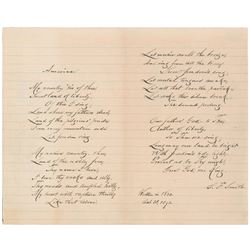 America
My country 'tis of thee
Sweet land of liberty,
Of thee I sing;
Land where my fathers died,
Land of the pilgrims' pride
From every mountain side
Let freedom ring.
My native country, thee
Land of the noble, free,
Thy name I love;
I love thy rocks and rills,
Thy woods and templed hills,
My heart with rapture thrills
Like that above.
Let music swell the breeze,
And ring from all the trees
Sweet freedom's song;
Let mortal tongues awake,
Let all that breathe partake,
Let rocks their silence break,
The sound prolong.
Our fathers' God to Thee,
Author of liberty,
To Thee we sing;
Long may our land be bright
With freedom's holy light,
Protect us by Thy might,
Great God our King.
S. F. Smith
Written in 1832